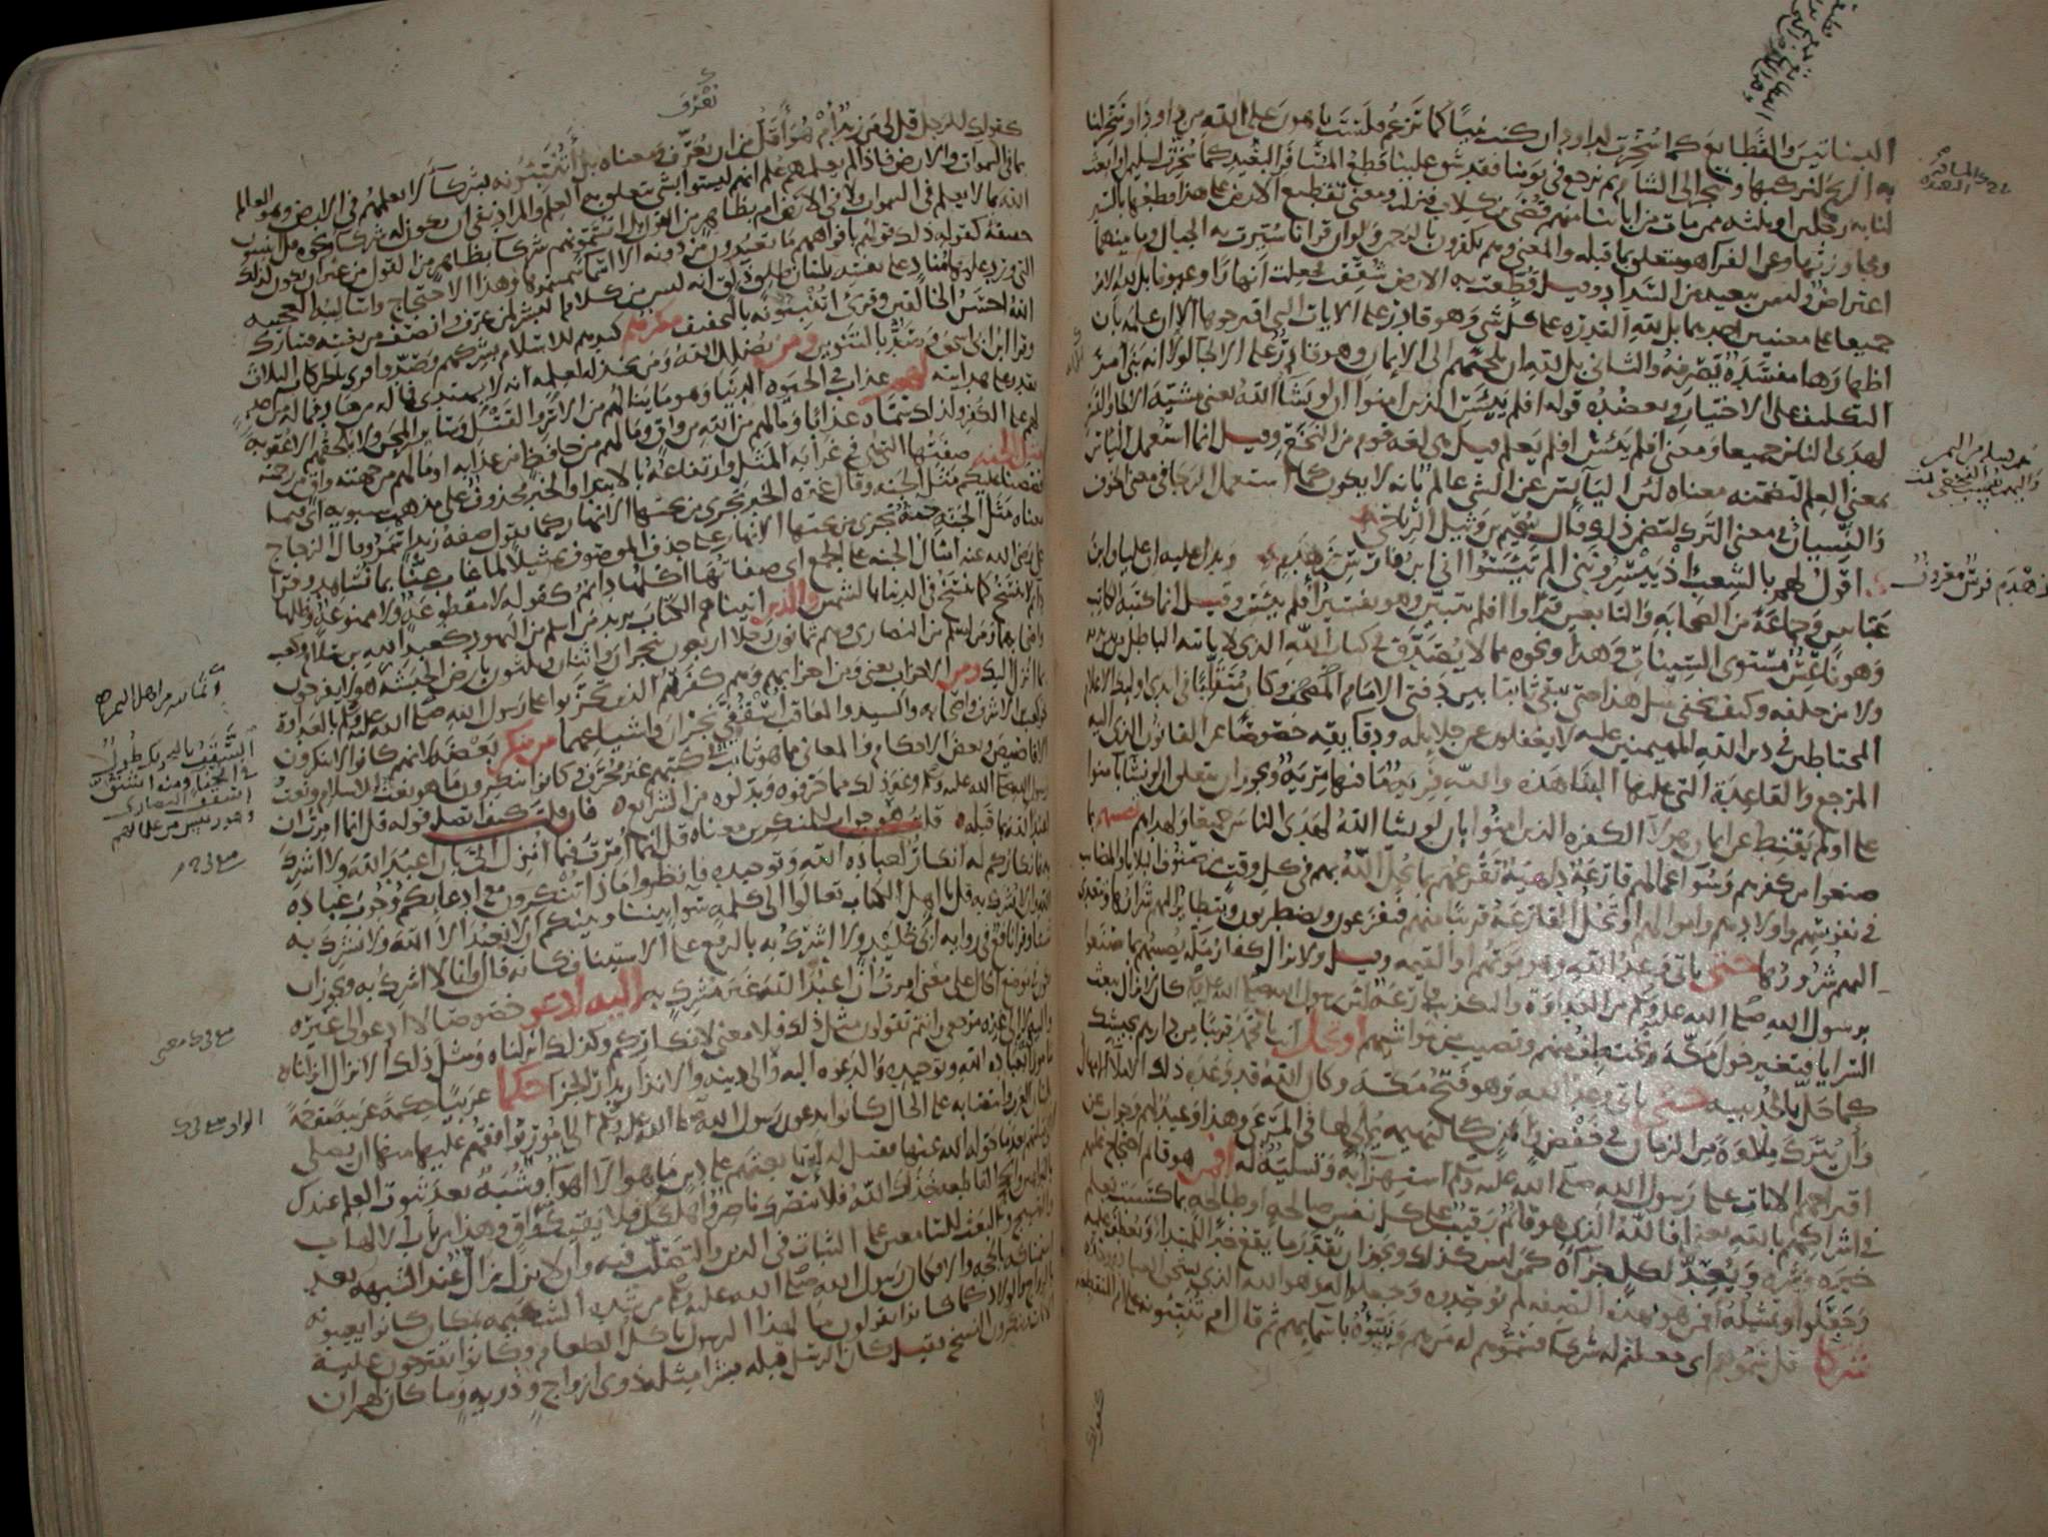 البساتين والقطايع كما سخرت لداود ان كنت نبيا كما تزعم فلست باهون على الله من داود او سخر لنا
به الريح لنركبها ونتجر الى الشام ثم نرجع في يومنا فقد شق علينا قطع المسافة البعيدة كما سخرت لسليمن او ابعث
لنا به رجلين او ثلثة ممن مات من ابائنا منهم قصي بن كلاب فنزلت ومعنى تقطيع الارض على هذا قطعها بالسير
ومجاوزتها وعن الفراء هو متعلق بما قبله والمعنى وهم يكفرون بالرحمن ولو ان قرانا سيرت به الجبال وما بينهما
اعتراض وليس ببعيد من السداد وقيل قطعت به الارض شققت فجعلت انهارا وعيونا بل لله الامر
جميعا على معنيين احدهما بل لله القدرة على كل شي وهو قادر على الايات التي اقترحوها الا ان علمه بان
اظهارها مفسدة يصرفه والثاني بل لله ان يلجئهم الى الايمان وهو قادر على الالجا لولا انه بنى امر
التكليف على الاختيار ويعضده قوله افلم ييئس الذين امنوا ان لو يشا الله يعني مشية الالجا والقسر
لهدى الناس جميعا ومعنى افلم ييئس افلم يعلم قيل هي لغة قوم من النخع وقيل انما استعمل الياس
بمعنى العلم لتضمنه معناه لان اليائس عن الشي عالم بانه لا يكون كما استعمل الرجا في معنى الخوف
والنسيان في معنى الترك لتضمن ذلك قال سحيم بن وثيل الرياحي
اقول لهم بالشعب اذ ييسرونني الم تيئسوا اني ابن فارس زهدم ويدل عليه ان عليا وابن
عباس وجماعة من الصحابة والتابعين قراوا افلم يتبين وهو تفسير افلم ييئس وقيل انما كتبه الكاتب
وهو ناعس مستوى السينات وهذا ونحوه مما لا يصدق في كتاب الله الذي لا ياتيه الباطل من بين يديه
ولا من خلفه وكيف يخفى مثل هذا حتى يبقى ثابتا بين دفتي الامام المصحف وكان متقلبا في ايدي اوليك الاعلام
المحتاطين في دين الله المهيمنين عليه لا يغفلون عن جلايله ودقايقه خصوصا عن القانون الذي اليه
المرجع والقاعدة التي عليها البنا هذه والله فرية ما فيها مرية ويجوز ان يتعلق ان لو يشا بامنوا
على اولم يقنط عن ايمان هولا الكفرة الذين امنوا بان لو يشا الله لهدى الناس جميعا ولهداهم تصيبهم بما
صنعوا من كفرهم وسو اعمالهم قارعة داهية تقرعهم بما يحل الله بهم في كل وقت من صنوف البلايا والمصايب
في نفوسهم واولادهم واموالهم او تحل القارعة قريبا منهم فيفزعون ويضطربون ويتطاير اليهم شرارها ويتعدى
اليهم شرورها حتى ياتي وعد الله وهو موتهم او القيمة وقيل ولا يزال كفار مكة يصيبهم بما صنعوا
برسول الله صلى الله عليه وسلم من العداوة والتكذيب قارعة لان رسول الله صلى الله عليه وسلم كان لا يزال يبعث
السرايا فتغير حول مكة وتختطف منهم وتصيب من مواشيهم او تحل انت يا محمد قريبا من دارهم بجيشك
كما حل بالحديبية حتى ياتي وعد الله وهو فتح مكة وكان الله قد وعده ذلك الاملا الامهال
وان يترك ملاوة من الزمان في خفض وامن كالبهيمة يملى لها في المرعى وهذا وعيد لهم وجواب عن
اقتراحهم الايات على رسول الله صلى الله عليه وسلم استهزا به وتسلية له افمن هو قايم احتجاج عليهم
في اشراكهم بالله يعني افالله الذي هو قايم رقيب على كل نفس صالحة او طالحة بما كسبت يعلم
خيره وشره ويعد لكل جزاه كمن ليس كذلك ويجوز ان يقدر ما يقع خبرا للمبتدا ويعطف عليه
وجعلوا وتمثيله افمن هو بهذه الصفة لم يوحدوه وجعلوا له وهو الله الذي يستحق العبادة وحده
شركا قل سموهم اي جعلتم له شركا فسموهم له من هم ونبئوه باسمايهم ثم قال ام تنبئونه على ام المنقطعة
كقولك
زهدم فرس معروف
تعرف
كقولك للرجل قل لي من زيد ام هو اقل من ان يعرف ومعناه بل اتنبئونه بشركا لا يعلمهم في الارض وهو العالم
بما في السموات والارض فاذا لم يعلمهم علم انهم ليسوا بشي يتعلق به العلم والمراد نفي ان يكون له شركا ونحوه قل اتنبئون
الله بما لا يعلم في السموات ولا في الارض ام بظاهر من القول بل اتسمونهم شركا بظاهر من القول من غير ان يكون لذلك
حقيقة كقوله ذلك قولهم بافواههم ما تعبدون من دونه الا اسما سميتموها وهذا الاحتجاج واساليبه العجيبة
التي ورد عليها مناد على نفسه بلسان طلق ذلق انه ليس من كلام البشر لمن عرف وانصف من نفسه فتبارك
الله احسن الخالقين وقرئ اتنبئونه بالتخفيف مكرهم كيدهم للاسلام بشركهم وصدوا قرئ بالحركات الثلاث
وقرا ابن ابي اسحق وصد بالتنوين ومن يضلل الله ومن يخذله لعلمه انه لا يهتدي فما له من هاد فما له من احد
يقدر على هدايته لهم عذاب في الحيوة الدنيا وهو ما ينالهم من الاسر والقتل وساير المحن ولا يلحقهم الا عقوبة
لهم على الكفر ولذلك سماه عذابا وما لهم من الله من واق وما لهم من حافظ من عذابه او ما لهم من جهته واق من رحمته
مثل الجنة صفتها التي هي في غرابة المثل وارتفاعه بالابتدا والخبر محذوف على مذهب سيبويه اي فيما
قصصنا عليكم مثل الجنة وقال غيره الخبر تجري من تحتها الانهار كما تقول صفة زيد اسمر وقال الزجاج
معناه مثل الجنة جنة تجري من تحتها الانهار على حذف الموصوف تمثيلا لما غاب عنا بما نشاهد وقرا
علي رضي الله عنه امثال الجنة على الجمع اي صفاتها اكلها دايم كقوله لا مقطوعة ولا ممنوعة وظلها
دايم لا ينسخ كما ينسخ في الدنيا بالشمس والذين اتيناهم الكتاب يريد من اسلم من اليهود كعبد الله بن سلام وكعب
واصحابهما ومن اسلم من النصارى وهم ثمانون رجلا اربعون بنجران واثنان وثلثون بارض الحبشة هولا يفرحون
بما انزل اليك ومن الاحزاب يعني ومن احزابهم وهم كفرتهم الذين تحزبوا على رسول الله صلى الله عليه وسلم بالعداوة
نحو كعب بن الاشرف واصحابه والسيد والعاقب اسقفي نجران واشياعهما من ينكر بعضه لانهم كانوا لا ينكرون
الاقاصيص وبعض الاحكام والمعاني مما هو ثابت في كتبهم غير محرف وكانوا ينكرون ما هو نعت الاسلام ونعت
رسول الله صلى الله عليه وسلم وغير ذلك مما حرفوه وبدلوه من الشرايع فان قلت كيف اتصل قوله قل انما امرت ان
اعبد الله بما قبله قلت هو جواب للمنكرين معناه قل انما امرت فيما انزل الي بان اعبد الله ولا اشرك
به فانكاركم له انكار لعبادة الله وتوحيده فانظروا ماذا تنكرون مع ادعائكم وجوب عبادة
الله وان لا يشرك به قل يا اهل الكتاب تعالوا الى كلمة سوا بيننا وبينكم ان لا نعبد الا الله ولا نشرك به
شيا وقرا نافع في رواية ابي خليد ولا اشرك به بالرفع على الاستيناف كانه قال وانا لا اشرك به ويجوز ان
يكون في موضع الحال على معنى امرت ان اعبد الله غير مشرك به اليه ادعو خصوصا لا ادعو الى غيره
واليه لا الى غيره مرجعي وانتم تقولون مثل ذلك فلا معنى لانكاركم وكذلك انزلناه ومثل ذلك الانزال انزلناه
مامورا فيه بعبادة الله وتوحيده والدعوة اليه والى دينه والانذار بدار الجزا حكما عربيا حكمة عربية مترجمة
بلسان العرب وانتصابه على الحال كانوا يدعون رسول الله صلى الله عليه وسلم الى امور يوافقهم عليها منها ان يصلي
الى قبلتهم بعد ما حوله الله عنها فقيل له لئن تابعتهم على دين ما هو الا اهوا وشبه بعد ثبوت العلم عندك
بالبراهين والحجج القاطعة خذلك الله فلا ينصرك ناصر واهلكك فلا يقيك واق وهذا من باب الالهاب
والتهييج والبعث للسامعين على الثبات في الدين والتصلب فيه وان لا يزل زال عند الشبهة بعد
استمساكه بالحجة والا فكان رسول الله صلى الله عليه وسلم من شدة الشكيمة بمكان كانوا يعيبونه
بالزواج والولاد كما كانوا يقولون ما لهذا الرسول ياكل الطعام وكانوا يقترحون عليه
الايات وينكرون النسخ فقيل كان الرسل قبله بشرا مثله ذوي ازواج وذرية وما كان لهم ان